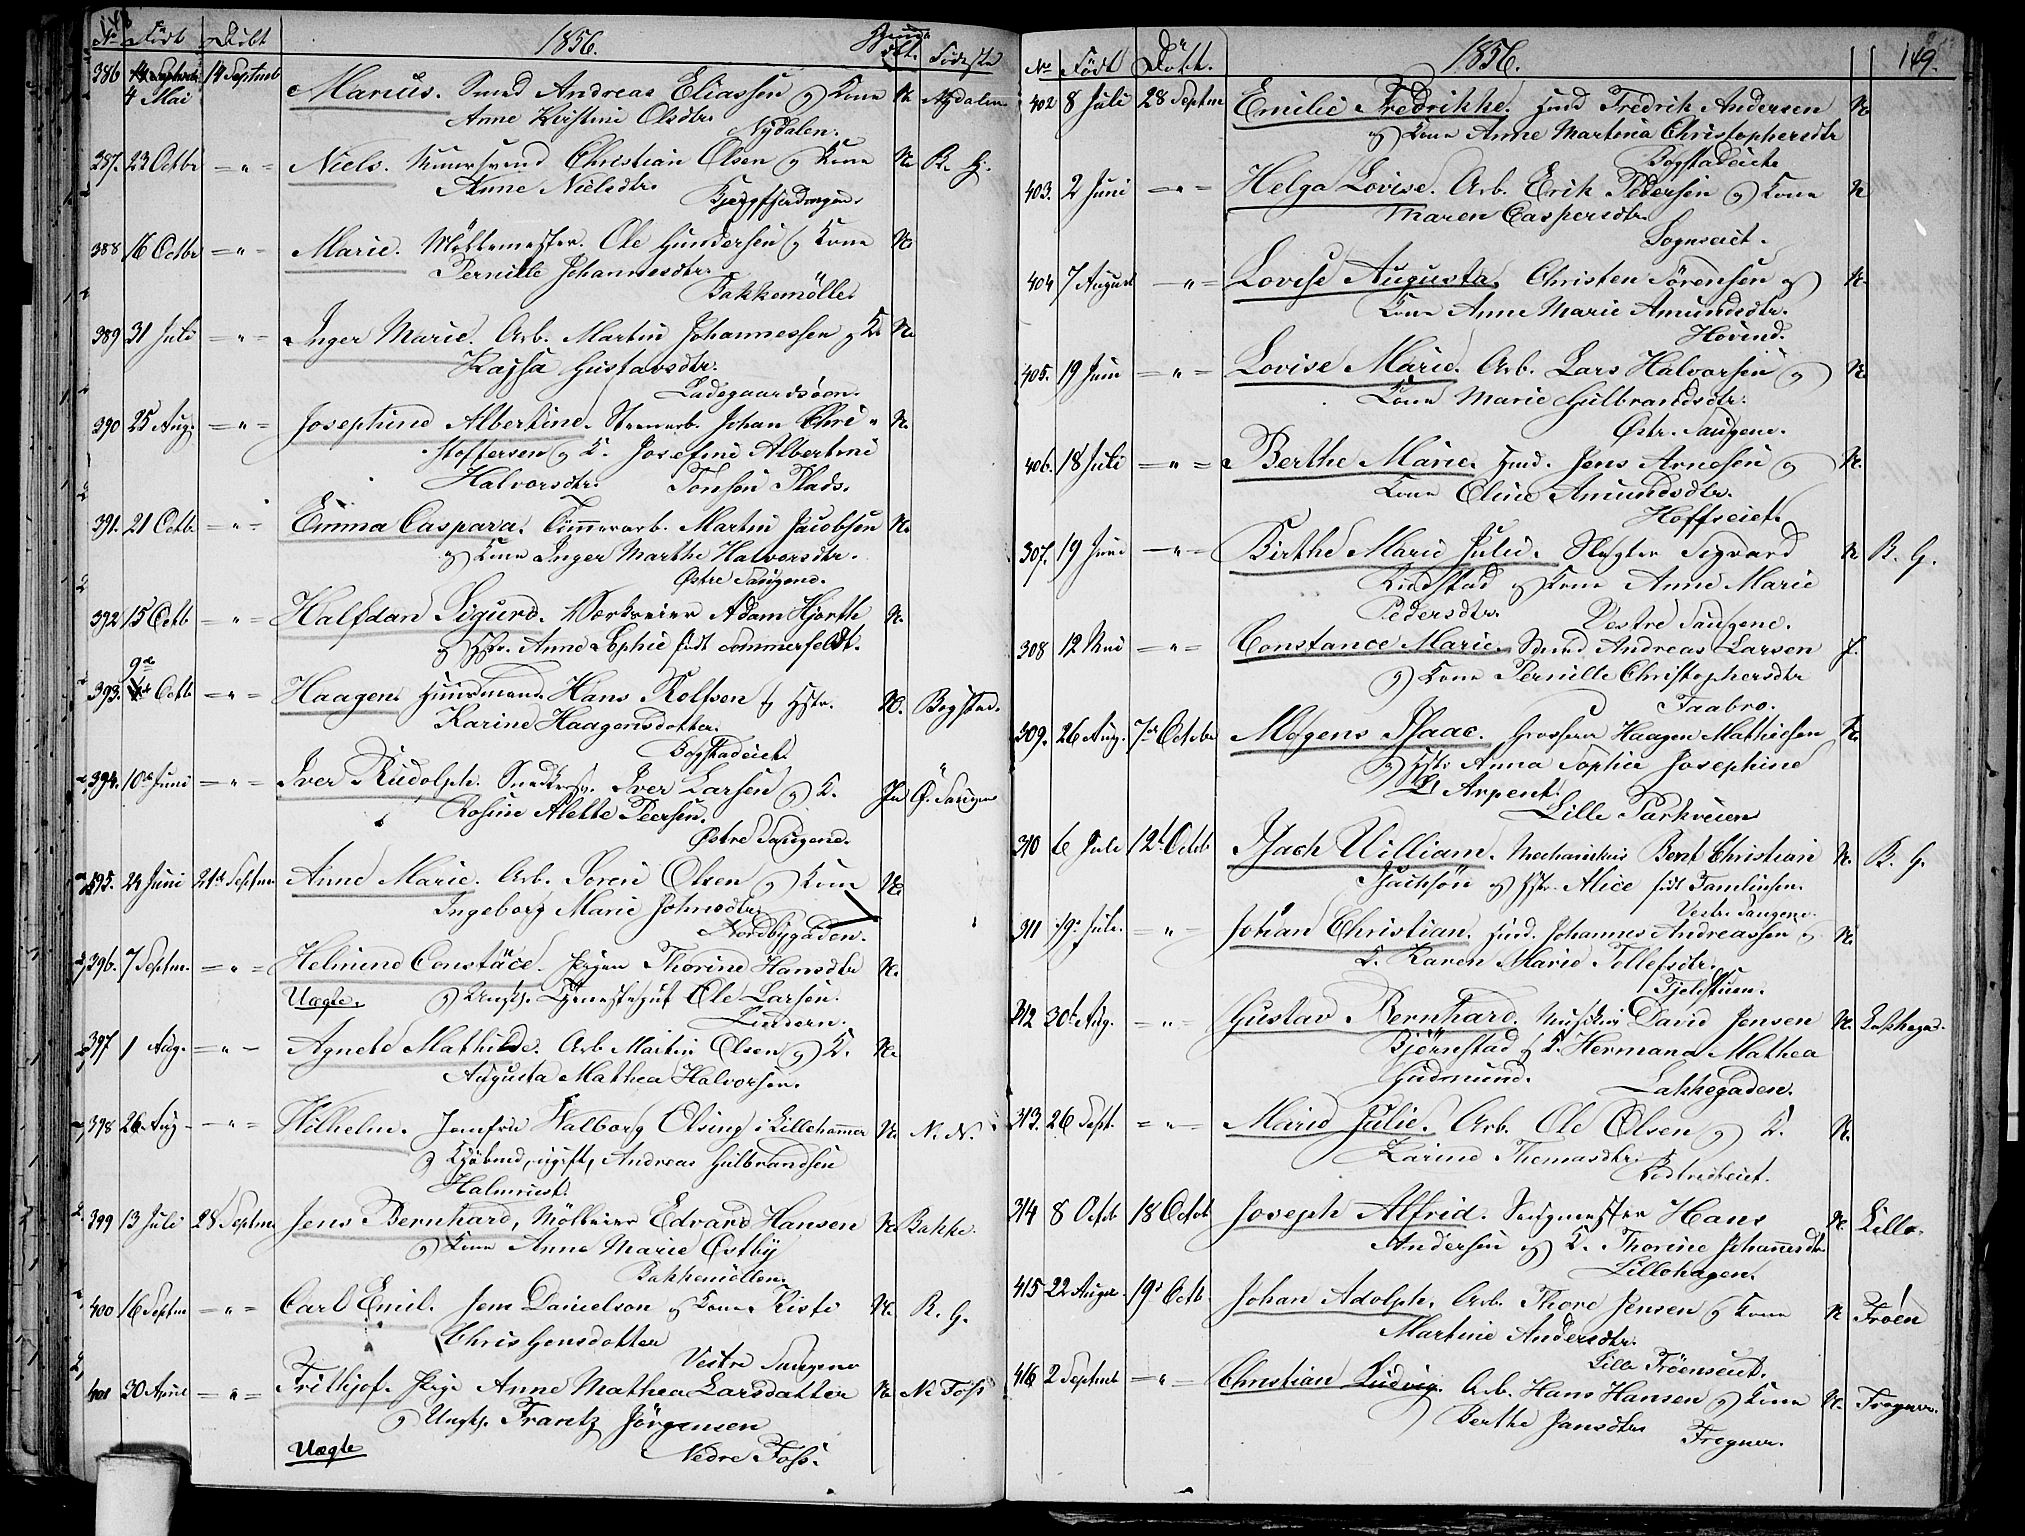 148
No Födt Döbt 1856. Hjemdbt. Födested
386 14 Septbr 14 Septemb Marius. Smed Andreas Eliassen og Kone N. Nydalen
4 Mai Anne Kirstine Olsdtr.
Nydalen.
387. 23 Octbr — " — Niels. Christian Olsen og Kone N. B. G.
Anne Nielsdtr.
388 16 Octbr — " — Marie. Möllemester Ole Gundersen og Kone N.
Pernille Johannesdtr.
Bakkemölle.
389 31 Juli — " — Inger Marie. Arb. Martin Johannessen og K. N.
Kajsa Gustavsdtr.
Ladegaardsöen.
390 25 Aug. — " — Josephine Albertine. Johan Chri-
stoffersen og K. Josefine Albertine N.
Halvorsdtr. Tonsen Plads.
391. 21 Octb — " — Emma Caspara. Tömmerarb. Martin Jacobsen N.
og Kone Inger Marthe Halvorsdtr.
Østre Saugene.
392 15 Octb — " — Halfdan Sigurd. Værkseier Adam Hjorth N.
og Hstr. Anne Sophie födt Sommerfeldt.
393. 9de Octb — " — Haagen. Huusmand Hans Rolfsen og Hstr. N. Bogstad.
Karine Haagensdotter.
Bogstadeiet.
394. 10de Juni — " — Iver Rudolph. Iver Larsen og K. Ja Ö. Saugene
Rosine Alette Peersen.
Østre Saugene.
395. 24 Juni 21de Septem Anne Marie. Arb. Soren Olsen og Kone N.
Ingeborg Marie Johnsdtr.
Nordbygaden.
396. 7 Septm. — " — Helmine Constace. Pigen Thorine Hansdtr N.
Uægte. og Ungk. Ole Larsen.
Lindern.
397 1 Aug. — " — Agnete Mathilde. Arb. Martin Olsen og K. N.
Augusta Mathea Halvorsen.
398 26 Aug — " — Wilhelm. Jomfru Walborg Olsing i Lillehammer N. N. N.
og Kjöbmd, ugift, Andreas Gulbrandsen
399 13 Juli 28 Septem Jens Bernhard, Mölleier Edvard Hansen N. Bakke.
og Kone Anne Marie Ostby
Bakkemöllen.
400 16 Septm — " — Carl Emil. Jens Danielson og Kone Kisti N. B. G.
Christensdotter
Vestre Saugene
401 30 April — " — Frithjof. Pige Anne Mathea Larsdatter N. N. Foss
og Ungk. Frantz Jörgensen
Uægte Nedre Foss.
No Födt Döbt. 1856. 149.
402 8 Juli 28 Septem Emilie Fredrikke. Huusmd Fredrik Andersen N.
og Kone Anne Martina Christophersdtr
Bogstadeiet.
403. 2 Juni — " — Helga Lovise. Arb. Erik Pedersen og Kone N
Maren Caspersdtr.
Sognseiet.
404 7 August — " — Lovise Augusta. Christen Sörensen og N.
Kone Anne Marie Amundsdtr.
Hovind.
405. 19 Juni — " — Lovise Marie. Arb. Lars Halvorsen og N.
Kone Marie Gulbrandsdtr.
Østr. Saugene.
406. 18 Juli — " — Berthe Marie. Huusmd. Jens Arnesen og N.
Kone Oline Amundsdtr.
Hoffseiet.
307. 19 Juni — " — Birthe Marie Julie. Slagter Sigvard N B. G.
Rudstad og Kone Anne Marie
Pedersdtr. Vestre Saugene.
308 12 Mai — " — Constance Marie. Smed Andreas Larsen J.
og Kone Pernille Christophersdtr
Faabro.
309. 26 Aug. 7de Octobr Mogens Isaac. Grosserer Haagen Mathiesen N.
og Hstr Anna Sophie Josephine
D'Arpent.
Lille Parkveien
310 6 Juli 12te Octob. Isach William. Mechanikus Bent Christian N. B. G.
Isachsön og Hstr. Alice födt Tamlinson.
Vestr. Saugene.
311 19de Juli. — " — Johan Christian. Huusmd. Johannes Andreassen og N.
K. Karen Marie Tollefsdtr.
Fjeldstuen.
312 30te Aug. — " — Gustav Bernhard. Musikus David Jensen N. Lakkegad.
Björnstad og K. Hermana Mathea
Gudmund.
Lakkegaden.
313. 26 Sept. — " — Marie Julie. Arb. Ole Olsen og K. N.
Karine Thomasdtr.
314 8 Octob 18 Octob Joseph Alfrid. Saugmester Hans N. Lillo.
Andersen og K. Thorine Johannesdtr
Lillohagen.
415 22 Augu. 19de Octb. Johan Adolph. Arb. Thore Jensen og Kone N Fröen
Martine Andersdtr.
Lille Fröenseiet.
416 2 Septemb — " — Christian Ludvig. Arb. Hans Hansen og Kone N. Frogner.
Berthe Jansdtr
Frogner.